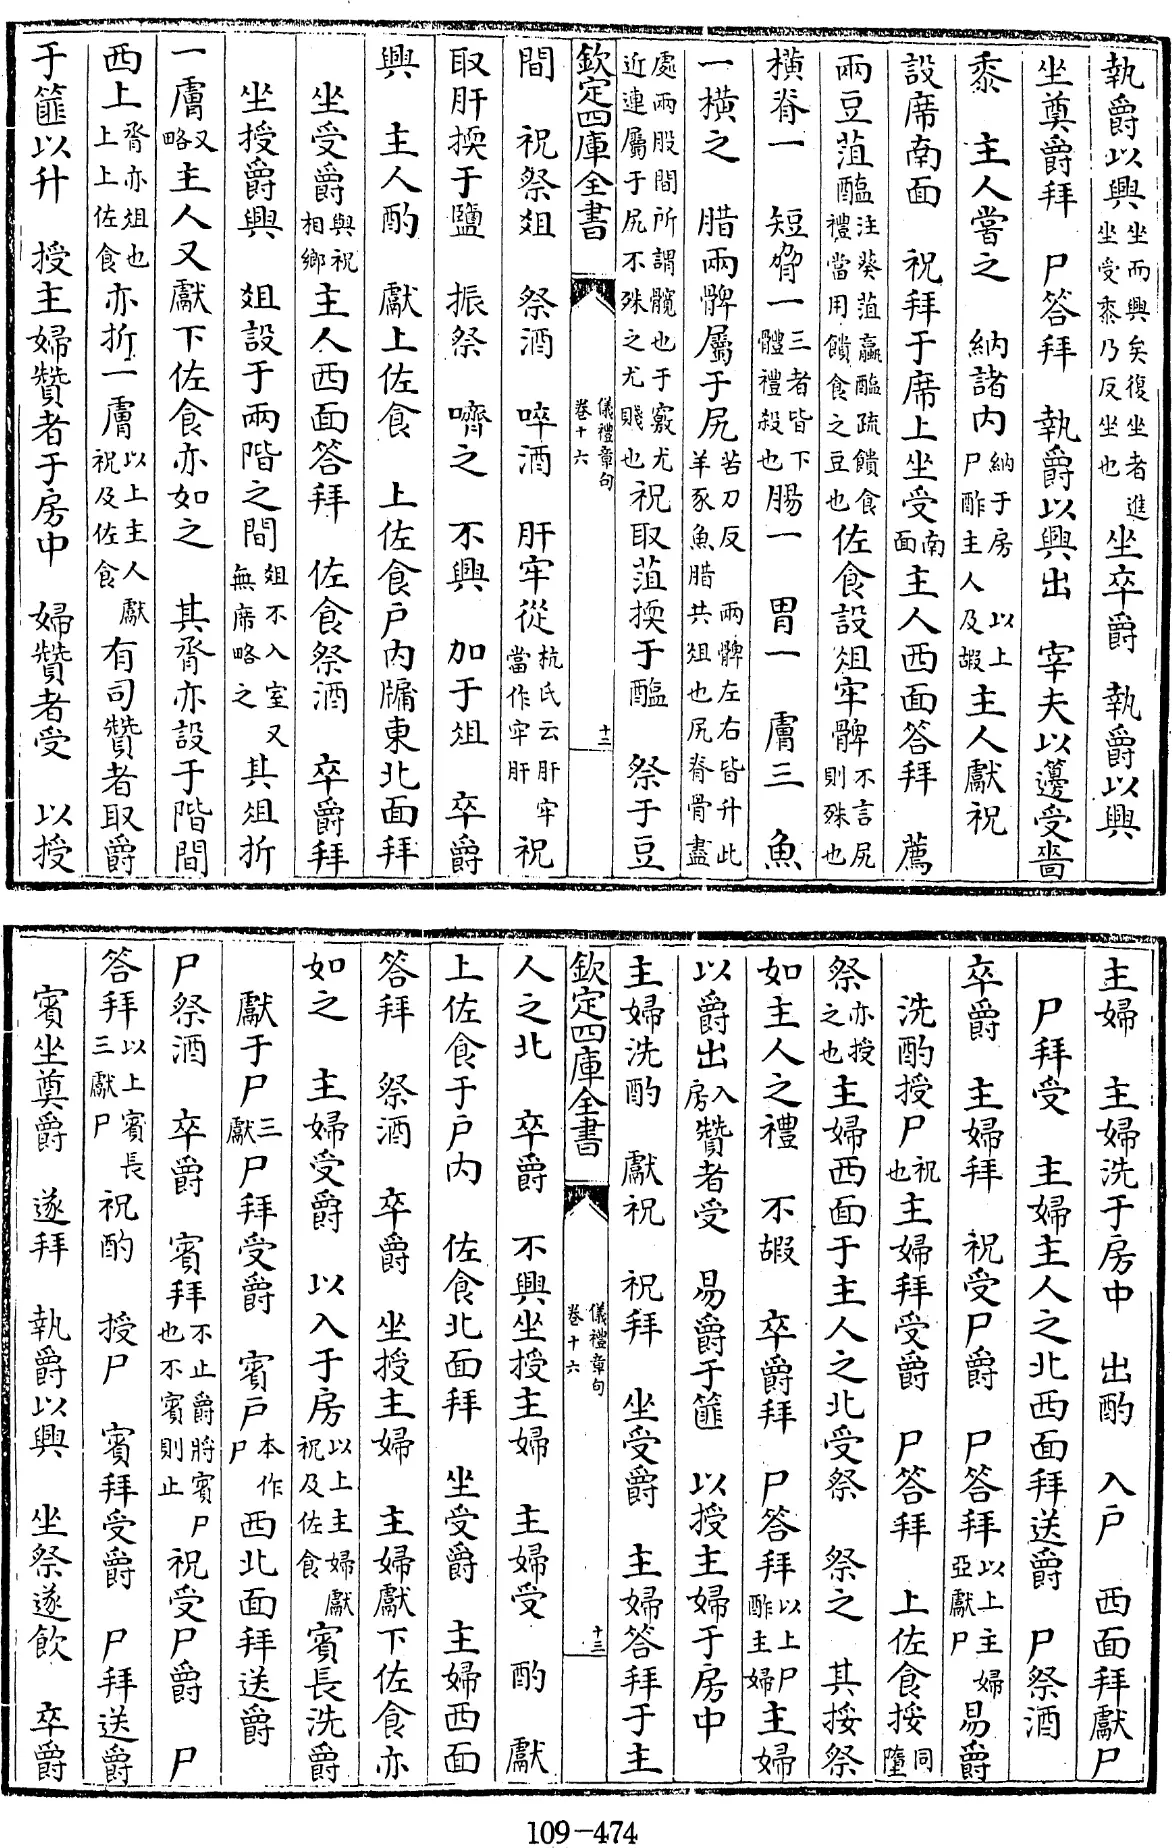 執爵以興坐而興矣復坐者進坐受黍乃反坐也坐卒爵　執爵以興
坐奠爵拜　尸答拜　執爵以興出　宰夫以籩受嗇
黍　主人嘗之　納諸內納于房　以上尸酢主人及嘏主人獻祝
設席南面　祝拜于席上坐受南面主人西面答拜　薦
兩豆菹醢注葵菹蠃醢疏饋食禮當用饋食之豆也佐食設俎牢髀不言尻則殊也
橫脊一　短脅一三者皆下體禮殺也腸一　胃一　膚三　魚
一橫之　腊兩髀屬于尻苦刀反　兩髀左右皆升此羊豕魚腊共俎也尻脊骨盡
處兩股間所謂髖也于竅尤近連屬于尻不殊之尤賤也祝取菹揳于醢　祭于豆
欽定四庫全書　儀禮章句卷十六　十二
間　祝祭俎　祭酒　啐酒　肝牢從杭氏云肝牢當作牢肝祝
取肝揳于鹽　振祭　嚌之　不興　加于俎　卒爵
興　主人酌　獻上佐食　上佐食户內牖東北面拜
坐受爵與祝相鄉主人西面答拜　佐食祭酒　卒爵拜
坐授爵興　俎設于兩階之間俎不入室又無席略之其俎折
一膚又略主人又獻下佐食亦如之　其脀亦設于階間
西上脀亦俎也上上佐食亦折一膚以上主人獻祝及佐食有司贊者取爵
于篚以升　授主婦贊者于房中　婦贊者受　以授
主婦　主婦洗于房中　出酌　入户　西面拜獻尸
尸拜受　主婦主人之北西面拜送爵　尸祭酒
卒爵　主婦拜　祝受尸爵　尸答拜以上主婦亞獻尸易爵
洗酌授尸祝也主婦拜受爵　尸答拜　上佐食挼同墮
祭亦授之也主婦西面于主人之北受祭　祭之　其挼祭
如主人之禮　不嘏　卒爵拜　尸答拜以上尸酢主婦主婦
以爵出入房贊者受　易爵于篚　以授主婦于房中
主婦洗酌　獻祝　祝拜　坐受爵　主婦答拜于主
欽定四庫全書　儀禮章句卷十六　十三
人之北　卒爵　不興坐授主婦　主婦受　酌　獻
上佐食于户內　佐食北面拜　坐受爵　主婦西面
答拜　祭酒　卒爵　坐授主婦　主婦獻下佐食亦
如之　主婦受爵　以入于房以上主婦獻祝及佐食賓長洗爵
獻于尸三獻尸拜受爵　賓户本作尸西北面拜送爵
尸祭酒　卒爵　賓拜不止爵將賓尸也不賓則止祝受尸爵　尸
答拜以上賓長三獻尸祝酌　授尸　賓拜受爵　尸拜送爵
賓坐奠爵　遂拜　執爵以興　坐祭遂飲　卒爵
109-474